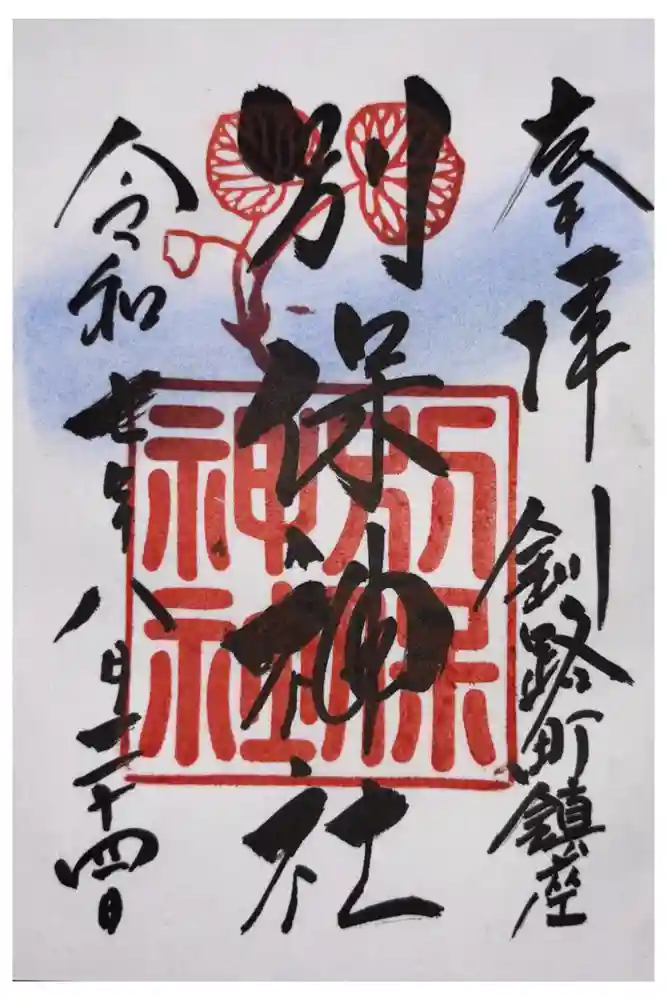 奉拝
釧路町鎮座
別保神社
別保
神社
令和七年八月二十四日